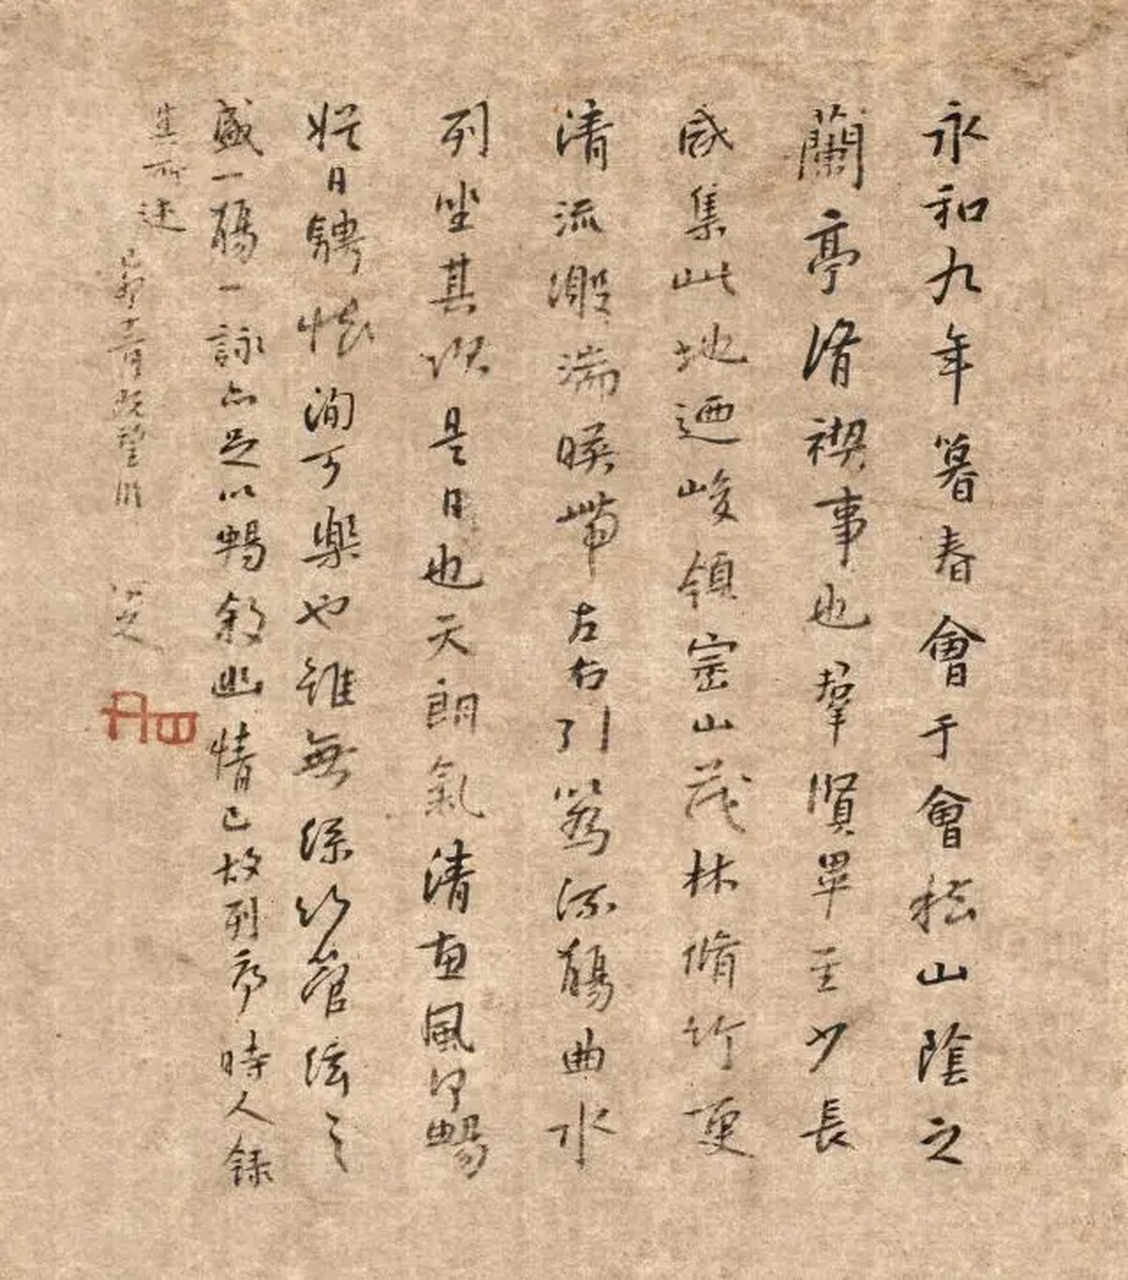 永和九年暮春會于會稽山陰之
蘭亭脩禊事也羣賢畢至少長
咸集此地迺峻領崇山茂林脩竹更
清流激湍暎帶左右引以為流觴曲水
列坐其次是日也天朗氣清惠風和暢
娛日騁懷洵可樂也雖無絲竹管絃之
盛一觴一詠亦足以暢敘幽情已故列序時人錄
其所述
己卯
八大